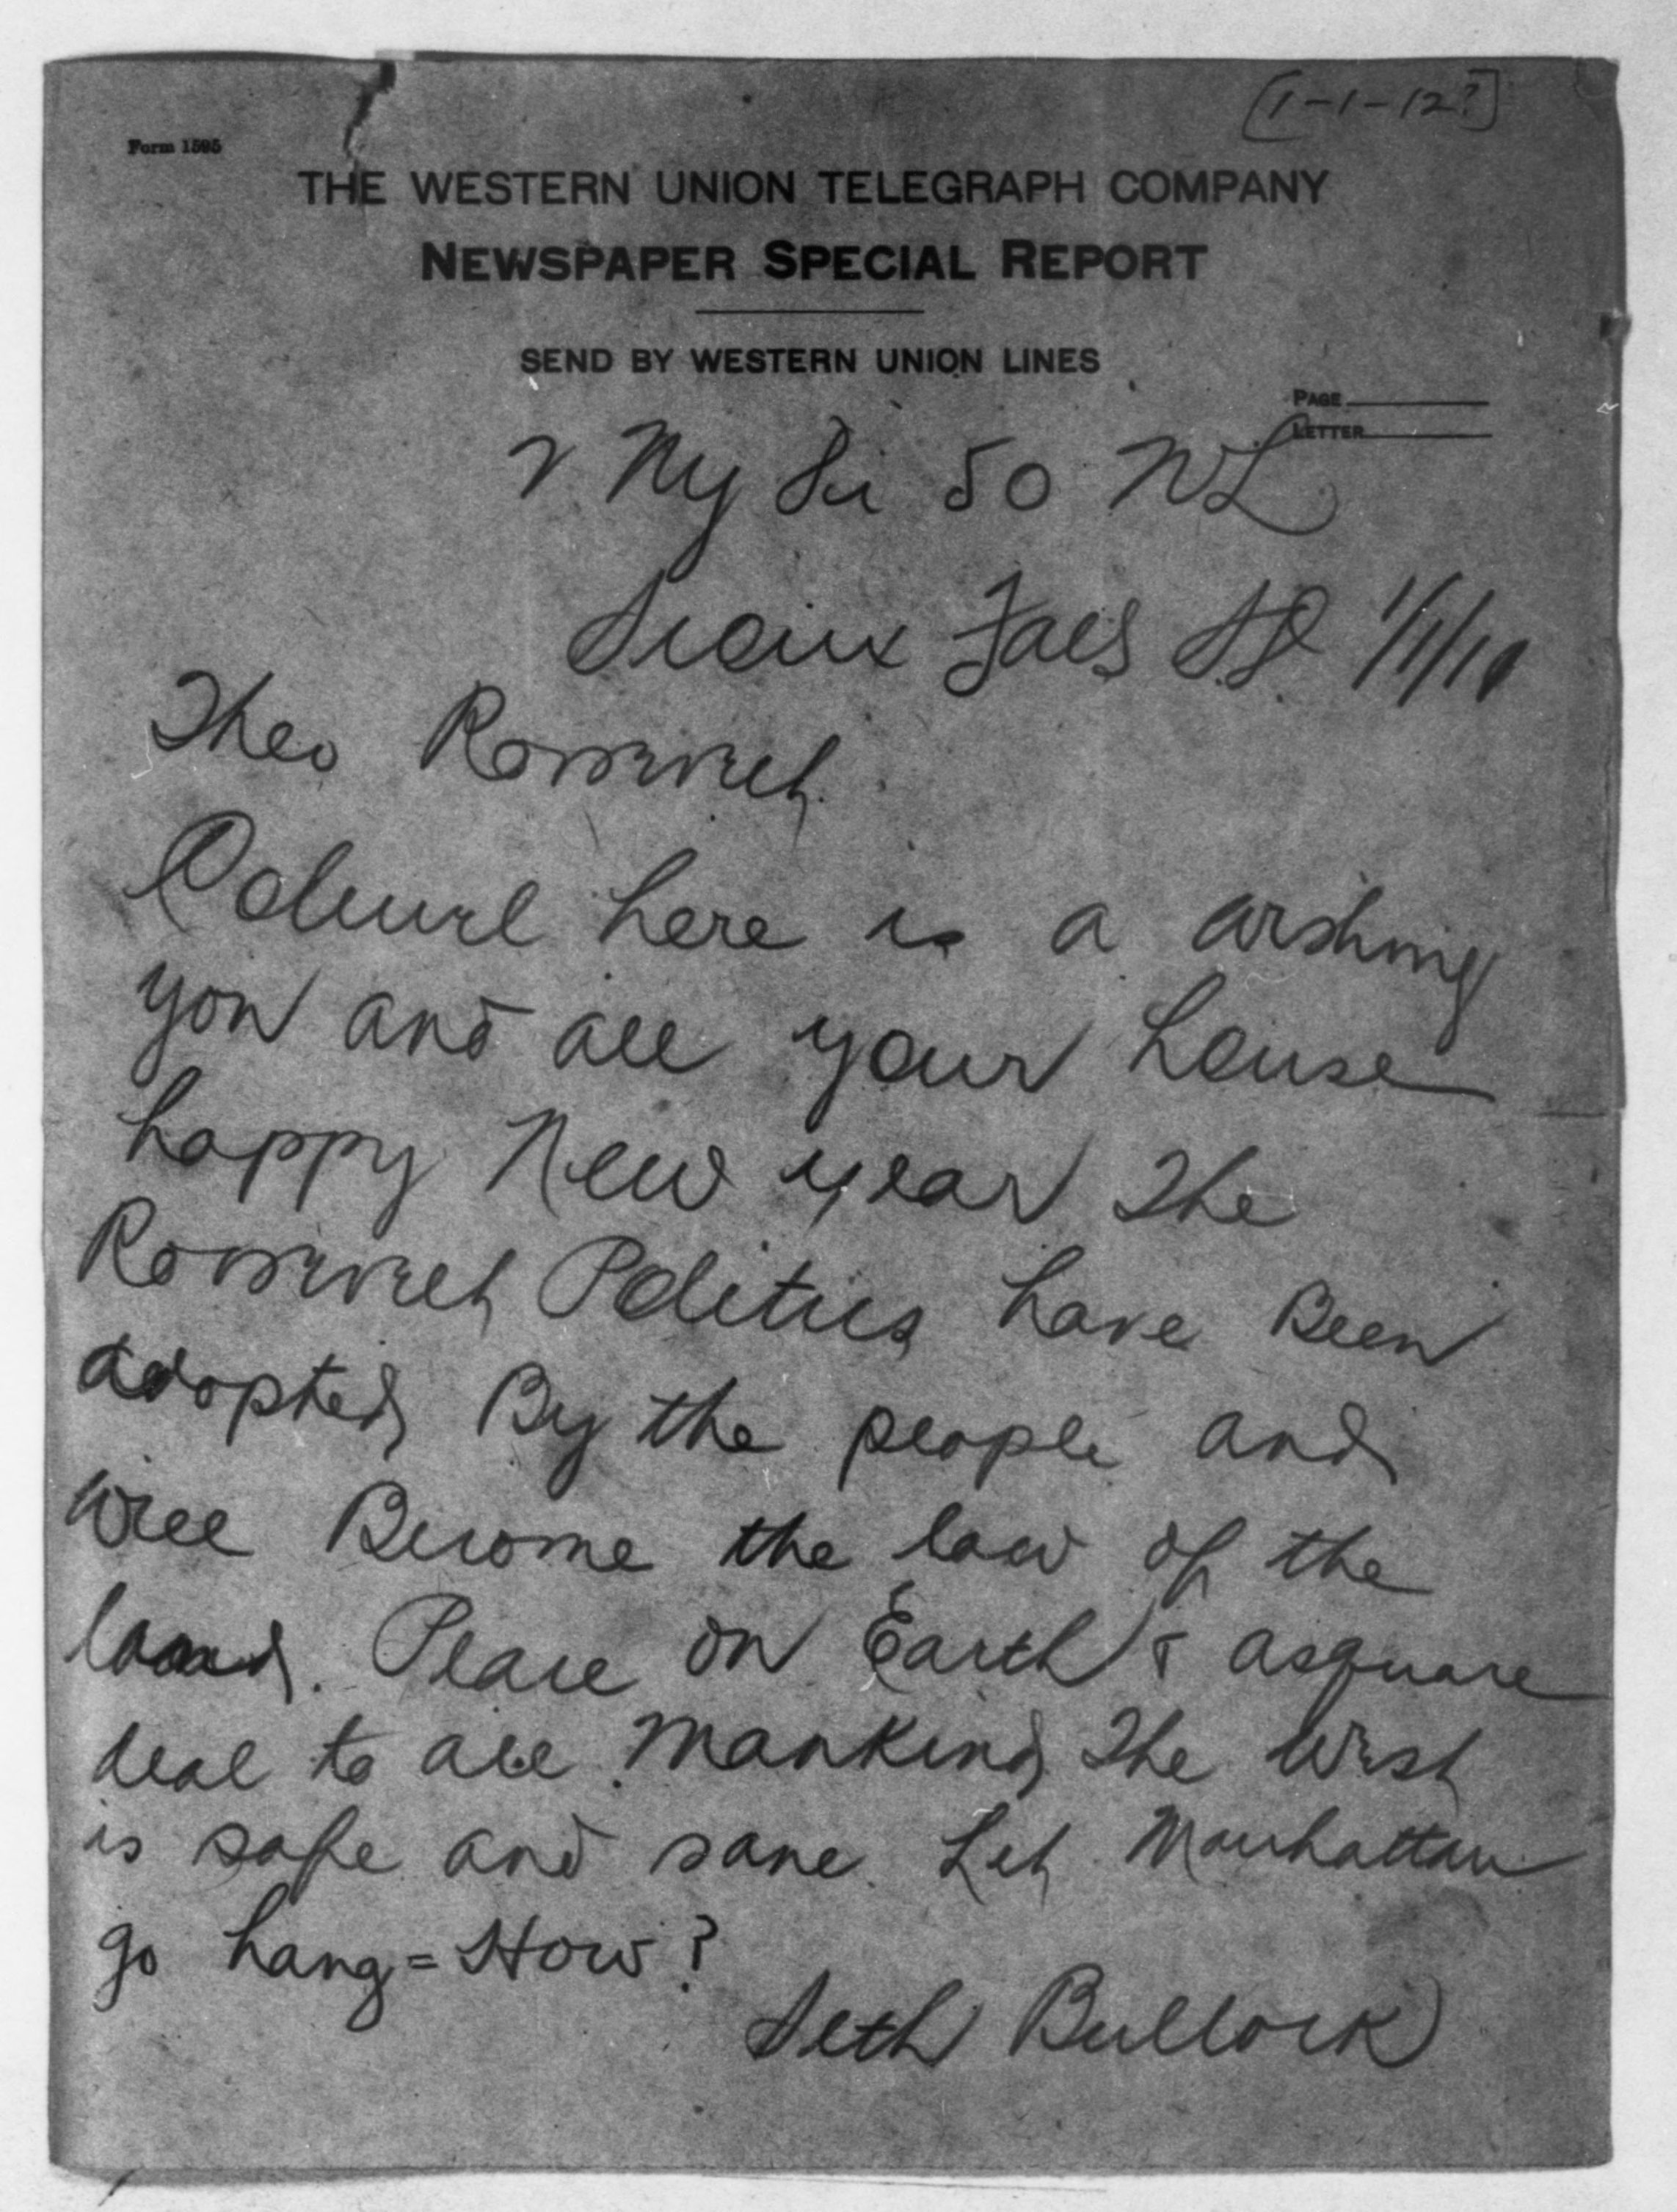 [1-1-12?]
Form 1595
THE WESTERN UNION TELEGRAPH COMPANY
NEWSPAPER SPECIAL REPORT
SEND BY WESTERN UNION LINES
PAGE
LETTER
2 Ny Si 50 NL
Sioux Falls SD 1/1/10
Theo Roosevelt
Colonel here is a wishing
you and all your house
happy New year The
Roosevelt Politics have Been
adopted By the people and
will Become the law of the
land. Peace on Earth & a square
deal to all mankind The West
is safe and sane Let Manhattan
go hang = How?
Seth Bullock